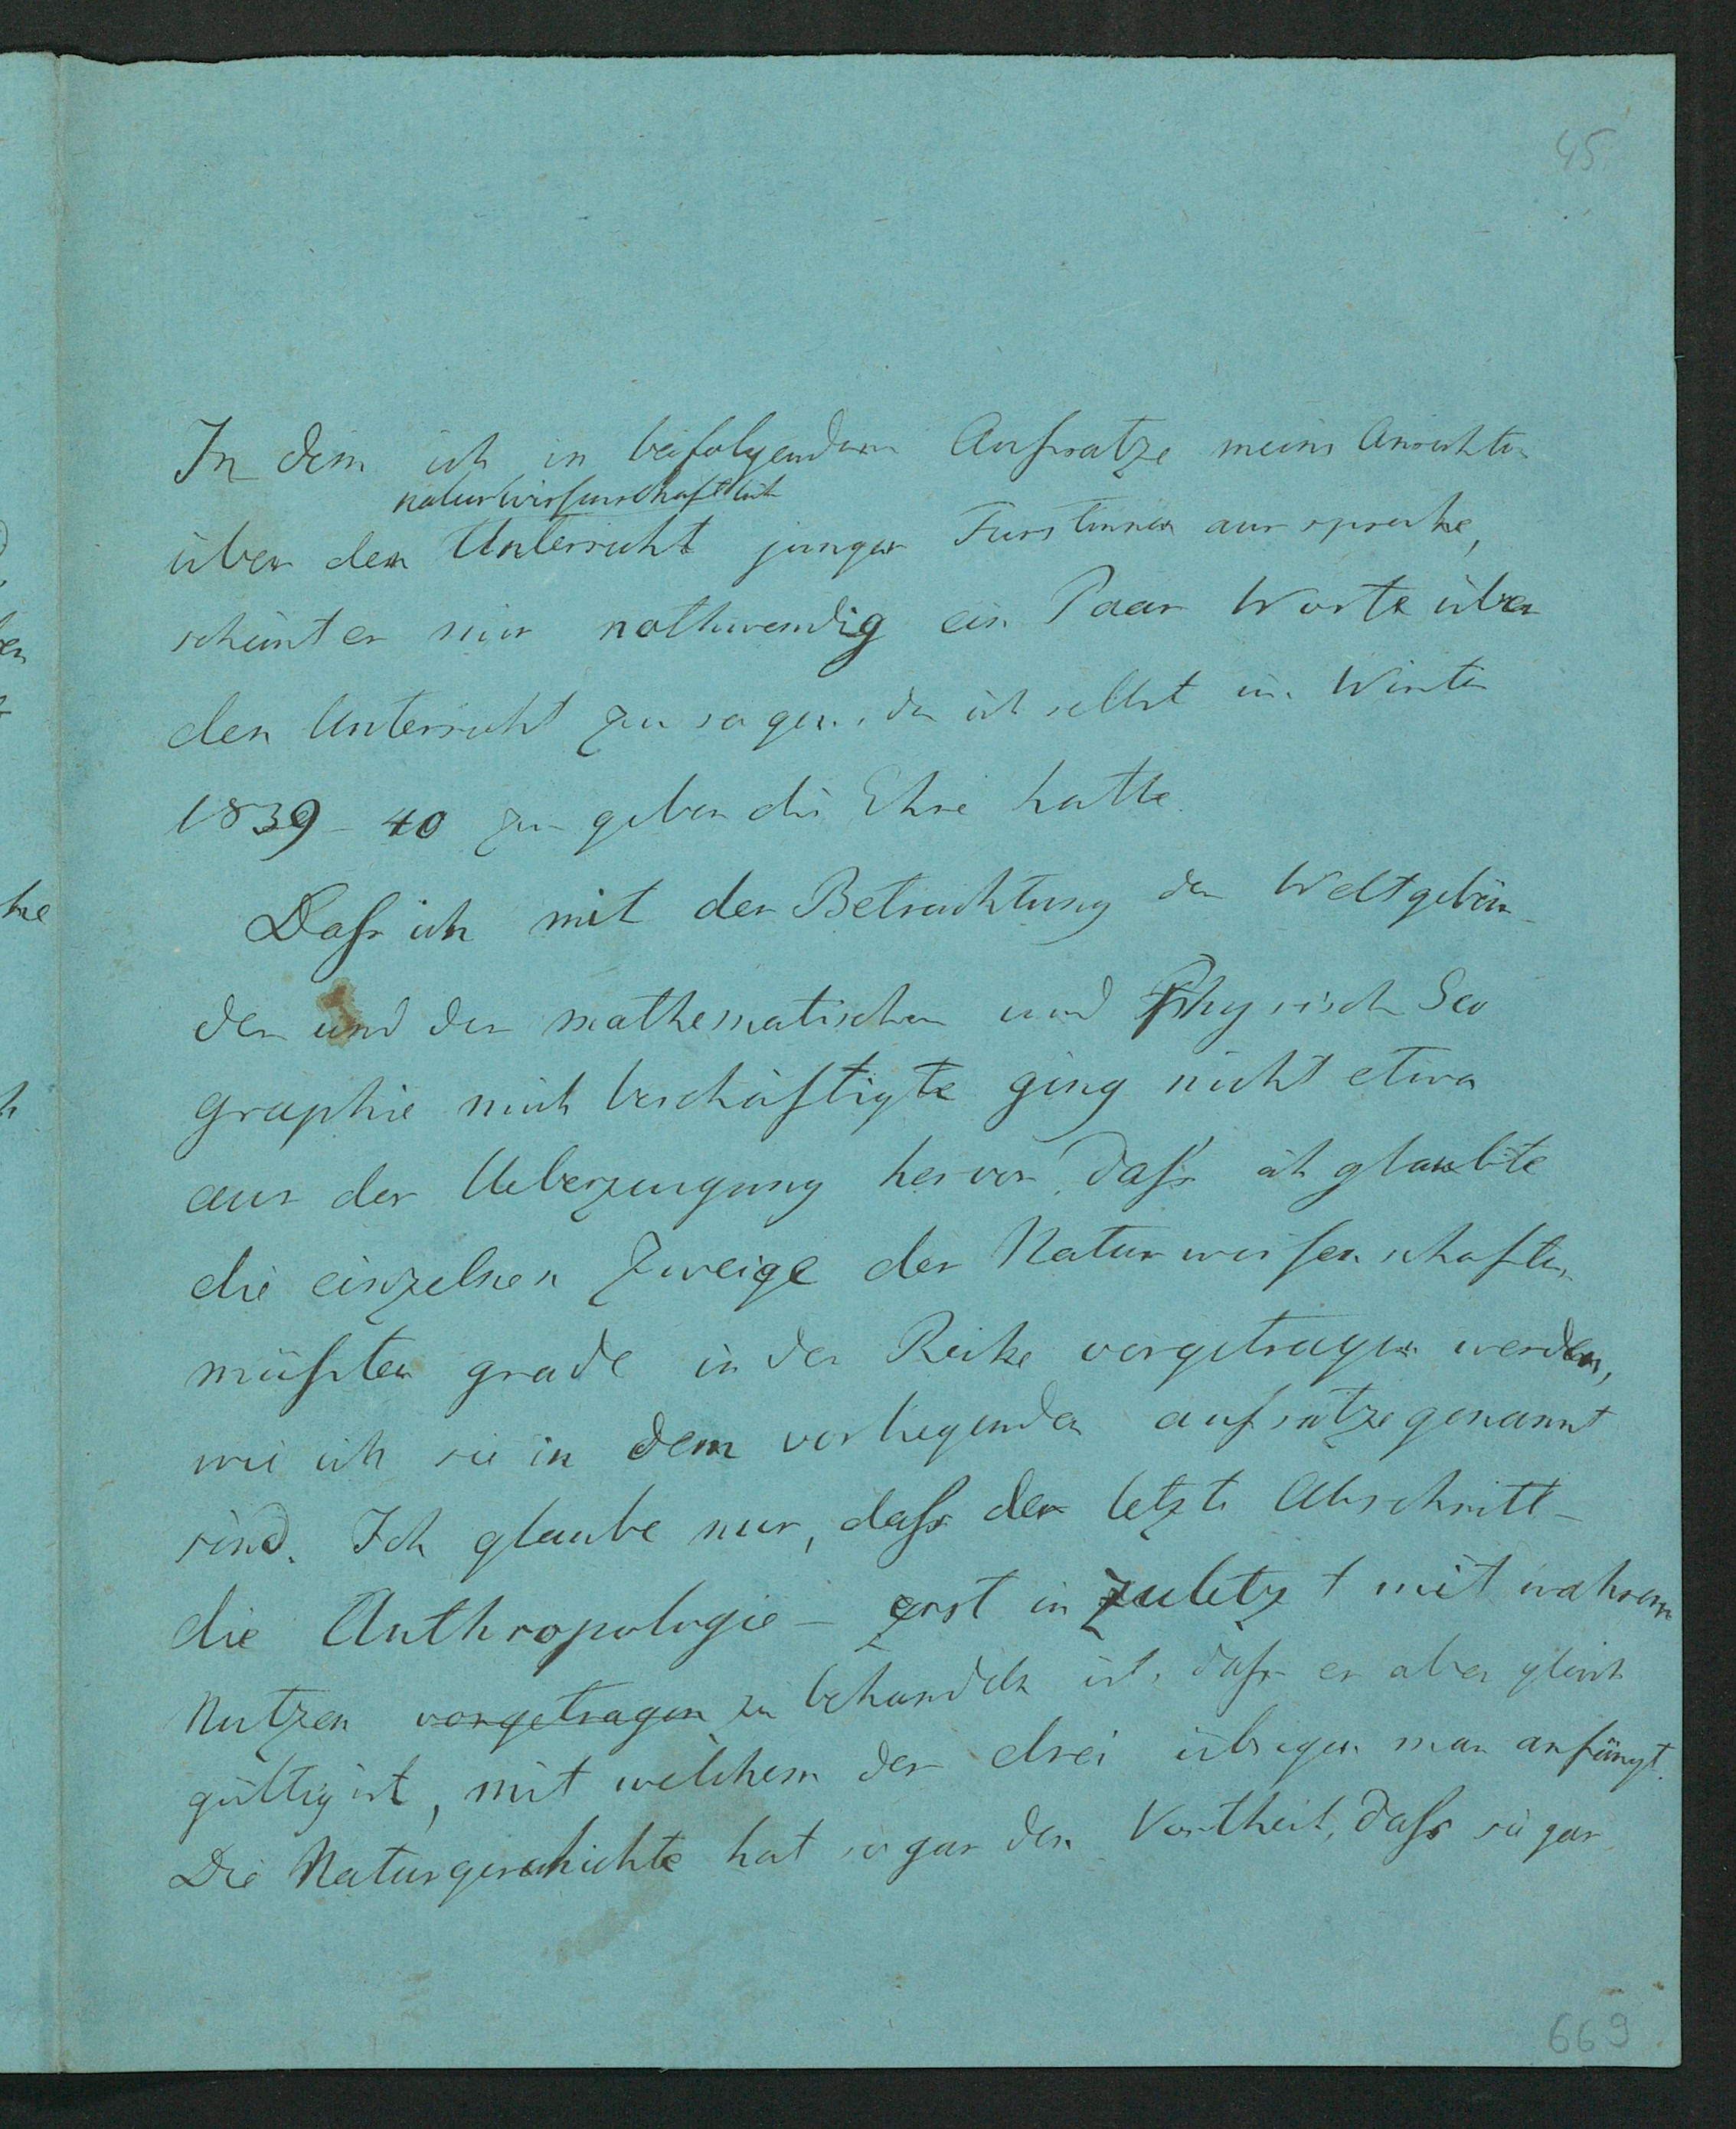 45
In dem ich in beifolgendem Aufsatze meine Ansichten
naturwissenschaftlich
über den Unterricht junger Furstinnen ausspreche,
scheint es mir nothwendig ein Paar Worte über
den Unterricht zu sagen, den ich selbst im Winter
1839 - 40 zu geben die Ehre hatte.
Dass ich mit der Betrachtung des Weltgebäu-
des und der mathematischen und Physisch Geo
graphie mich beschäftigte ging nicht etwa
aus der Ueberzeugung hervor, dass ich glaubte
die einzelnen Zweige der Naturwissenschaften
müssten grade in der Reihe vorgetragen werden,
wie ich sie in dem vorliegenden aufsatze genannt
sind. Ich glaube nur, dass der letzte Abschnitt -
die Anthropologie - erst in zuletzt mit wahrem
Nutzen vorgetragen zu behandeln ist, dass es aber gleich
gültig ist, mit welchem der drei übrigen man anfängt.
Die Naturgeschichte hat sogar den Vortheil, dass sie gar
669
he